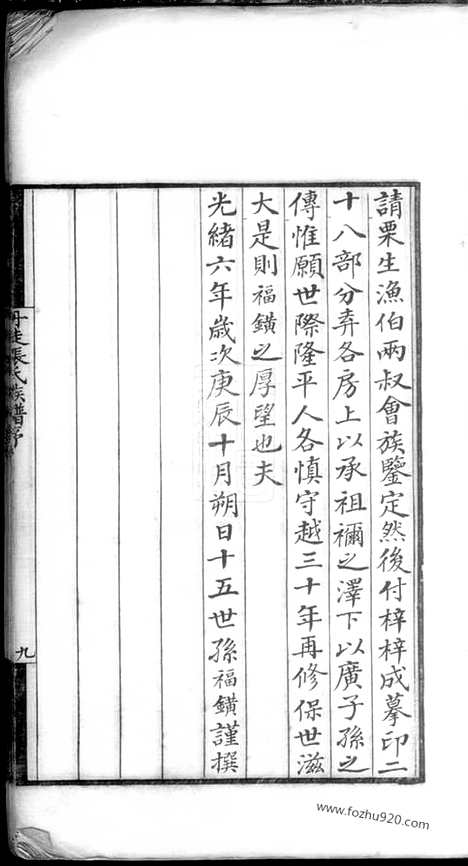 請栗生漁伯兩叔會族鑒定然後付梓梓成摹印二
十八部分弆各房上以承祖禰之澤下以廣子孫之
傳惟願世際隆平人各慎守越三十年再修保世滋
大是則福鐄之厚望也夫
光緒六年歲次庚辰十月朔日十五世孫福鐄謹撰
丹徒張氏族譜序
九
www.fozhu920.com